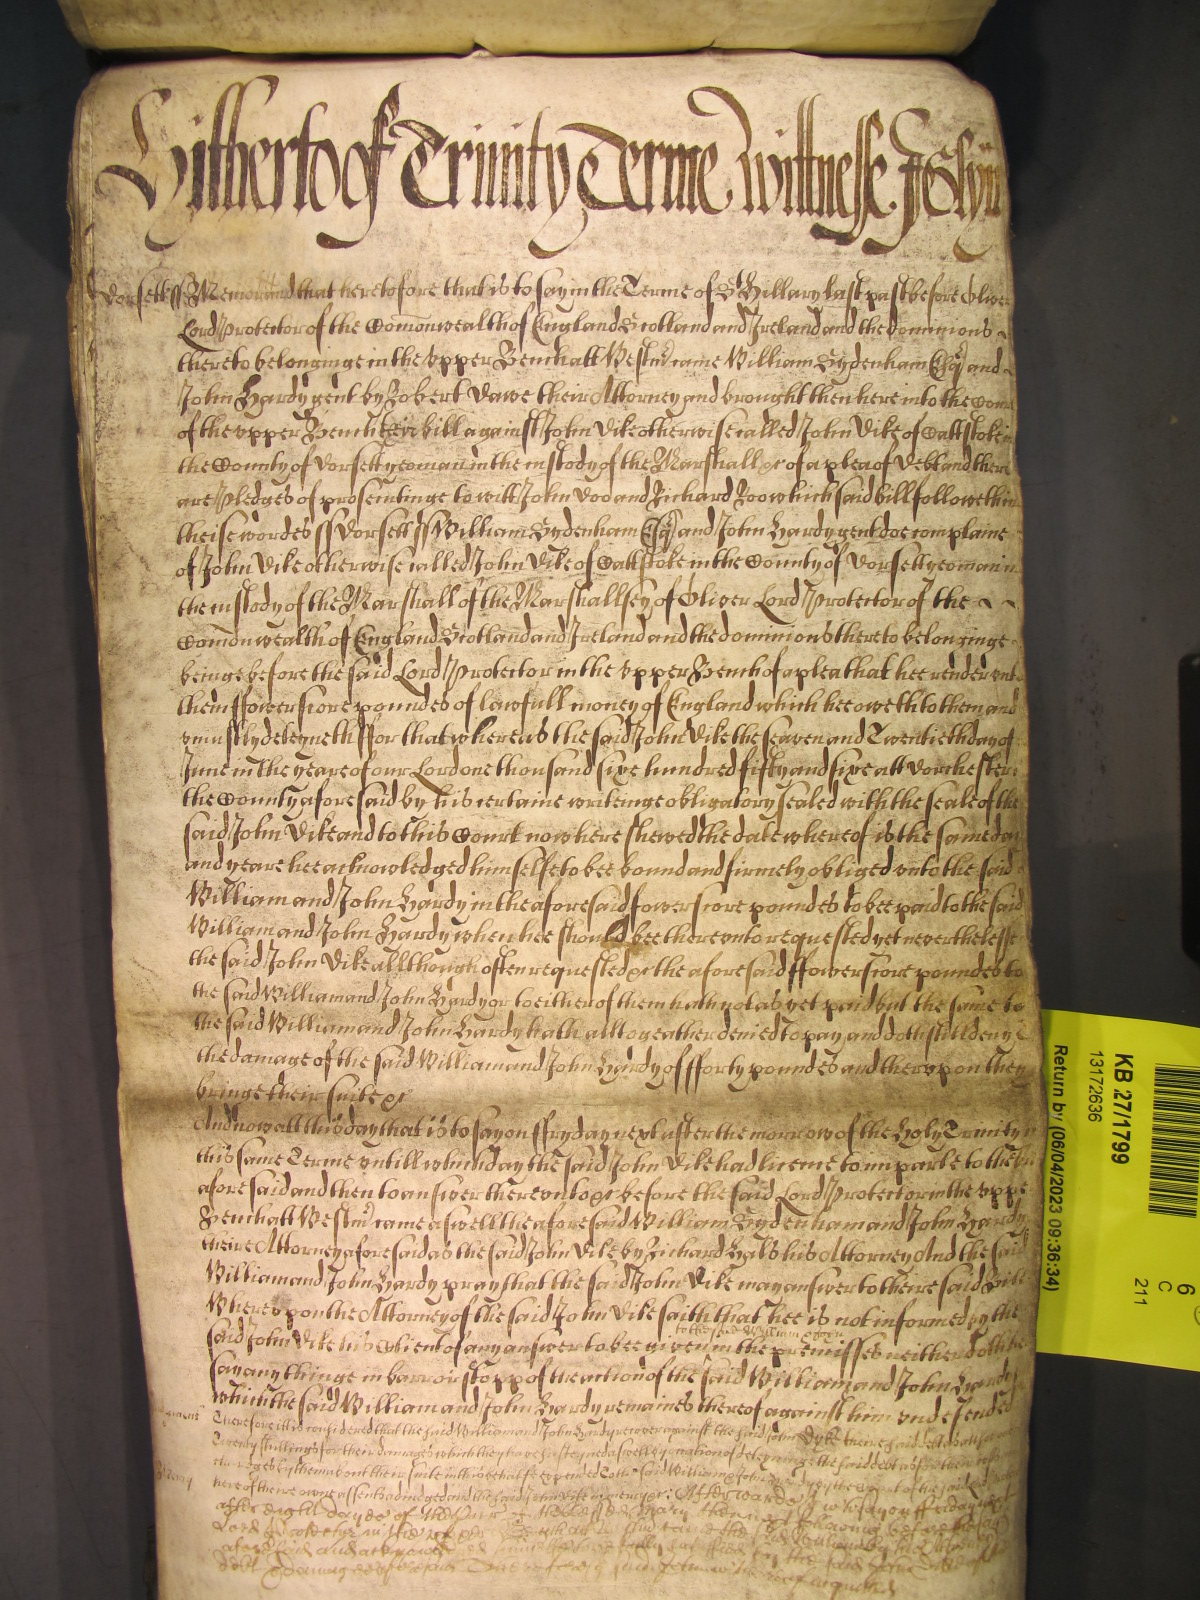 Hitherto of Trinity Terme wittnesse J Glyn
Dorsett ss Memorand that heretofore that is to say in the Terme of St Hillary last past before Oliver
Lord Protector of the Comonwealth of England Scotland and Ireland and the dominions
thereto belonginge in the upper Bench att Westmr came William Sydenham Esqr and
John Hardy gent by Robert Dawe their Attorney and brought then here into the Court
of the upper Bench their bill against John Dike otherwise called John Dike of Cattstoke in
the County of Dorsett yeoman in the custody of the Marshall &c of a plea of Debt and there
are Pledges of prosecutinge to witt John Doo and Richard Roo which said bill followeth in
theise wordes ss Dorsett ss William Sydenham Esqr and John Hardy gent doe complaine
of John Dike otherwise called John Dike of Cattstoke in the County of Dorsett yeoman in
the custody of the Marshall of the Marshallsey of Oliver Lord Protector of the
Comonwealth of England Scotland and Ireland and the dominions thereto belonginge
beinge before the said Lord Protector in the upper Bench of a plea that hee render unto
them ffower score poundes of lawfull money of England which hee oweth to them and
uniustly deteyneth ffor that whereas the said John Dike the seaven and Twentieth day of
June in the yeare of our Lord one thousand sixe hundred fifty and sixe att Dorchester in
the County aforesaid by his certaine writeinge obligatory sealed with the seale of the
said John Dike and to this Court now here shewed the date whereof is the same day
and yeare hee acknowledged himselfe to bee bound and firmely obliged unto the said
William and John Hardy in the aforesaid fower score poundes to bee paid to the said
William and John Hardy when hee should bee thereunto requested yet neverthelesse
the said John Dike allthough often requested &c the aforesaid ffower score poundes to
the said William and John Hardy or to either of them hath not as yet paid but the same to
the said William and John Hardy hath alltogeather denied to pay and doth still deny to
the damage of the said William and John Hardy of fforty poundes and thereupon they
bringe their suite &c
And now att this day that is to say on ffryday next after the morrow of the Holy Trinity in
this same Terme untill which day the said John Dike had licence to imparle to the bill
aforesaid and then to answer thereunto &c before the said Lord Protector in the upper
Bench att Westmr came aswell the aforesaid William Sydenham and John Hardy
theire Attorney aforesaid as the said John Dike by Richard Hals his Attorney And the said
William and John Hardy pray that the said John Dike may answer to theire said Bill
Whereupon the Attorney of the said John Dike saith that hee is not informed by the
to the said William
said John Dike his Client of any answer to bee given in the premisses neither doth hee
say any thinge in barr or stopp of the action of the said William and John Hardy
whereby the said William and John Hardy remaines thereof against him undefended
Therefore itt is considered that the said William and John Hardy recover against the said John Dyke theire said debt
Twenty shillings for their damages which they have susteyned aswell by occation of deteyninge the said debt as for their
charges by them about their suite in this behalfe expended to the said William & John Hardy by the Court of the said
here of theire owne assent adiudged and the said John Dike in mercy &c Afterwards
after eight dayes of the
Lord Protector in the upper Bench
aforesaid and acknowledged
debt & damages aforesaid Therefore
KB 27/1799
13172636
Return by (06/04/2023 09:36:34)
6
C
211